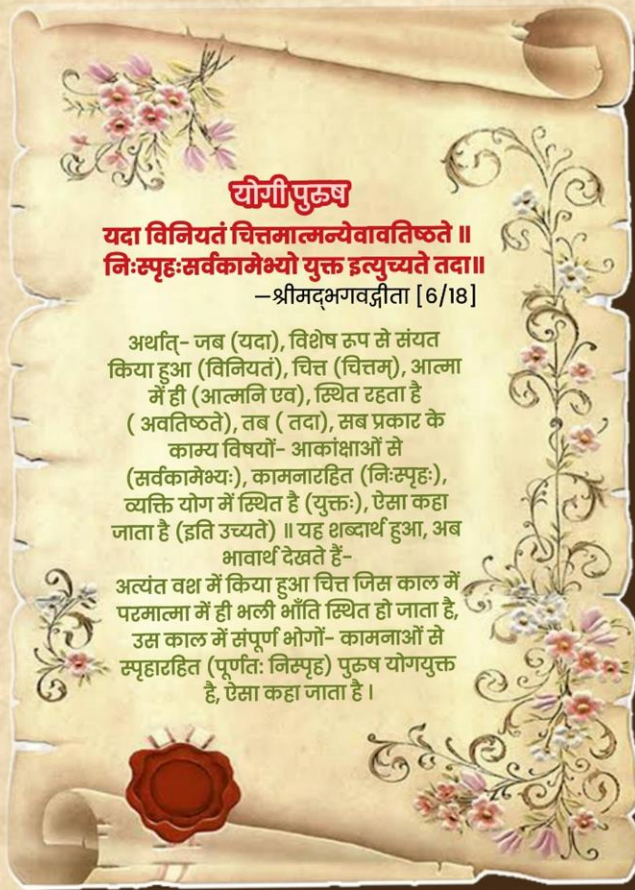 योगी पुरुष
यदा विनियतं चित्तमात्मन्येवावतिष्ठते ॥
निःस्पृहःसर्वकामेभ्यो युक्त इत्युच्यते तदा॥
—श्रीमद्भगवद्गीता [6/18]
अर्थात्- जब (यदा), विशेष रूप से संयत
किया हुआ (विनियतं), चित्त (चित्तम्), आत्मा
में ही (आत्मनि एव), स्थित रहता है
( अवतिष्ठते), तब ( तदा), सब प्रकार के
काम्य विषयों- आकांक्षाओं से
(सर्वकामेभ्यः), कामनारहित (निःस्पृहः),
व्यक्ति योग में स्थित है (युक्तः), ऐसा कहा
जाता है (इति उच्यते) ॥ यह शब्दार्थ हुआ, अब
भावार्थ देखते हैं-
अत्यंत वश में किया हुआ चित्त जिस काल में
परमात्मा में ही भली भाँति स्थित हो जाता है,
उस काल में संपूर्ण भोगों- कामनाओं से
स्पृहारहित (पूर्णत: निस्पृह) पुरुष योगयुक्त
है, ऐसा कहा जाता है ।